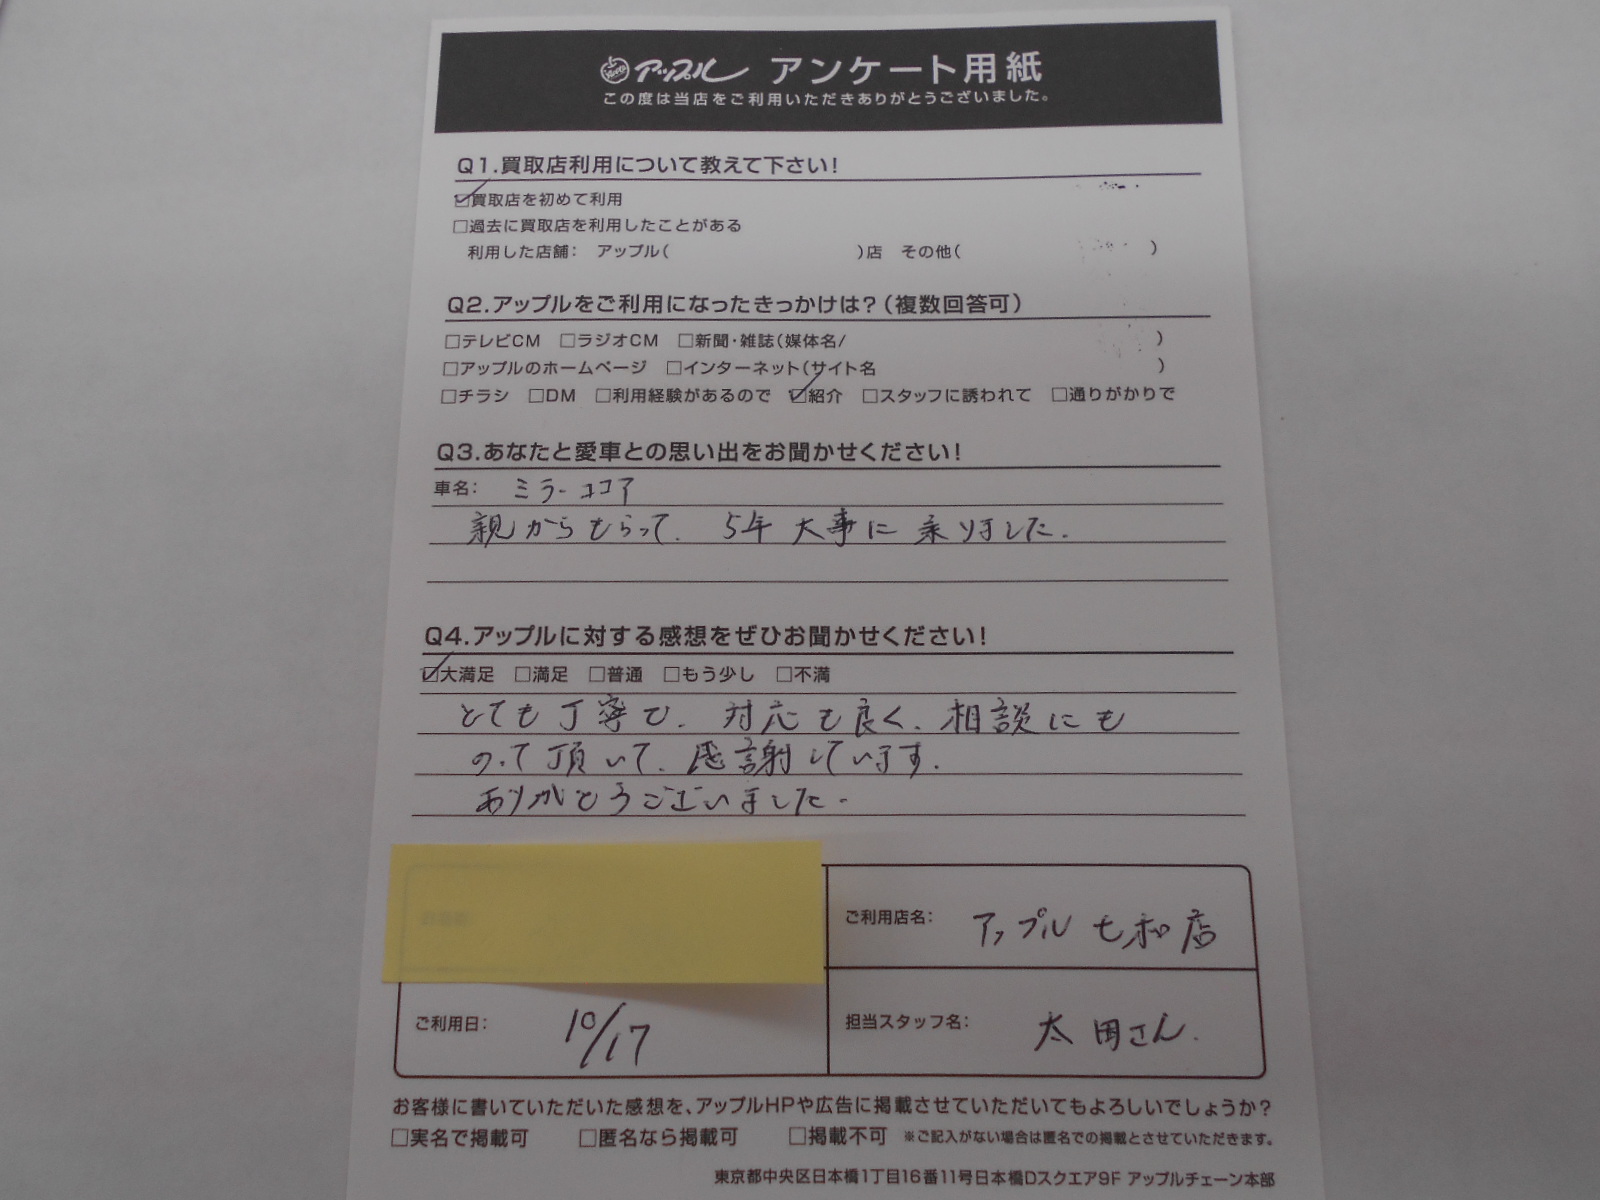 アップル アンケート用紙
この度は当店をご利用いただきありがとうございました。
Q1.買取店利用について教えて下さい!
☑買取店を初めて利用
□過去に買取店を利用したことがある
利用した店舗: アップル( )店 その他( )
Q2.アップルをご利用になったきっかけは?(複数回答可)
□テレビCM □ラジオCM □新聞・雑誌(媒体名/ )
□アップルのホームページ □インターネット(サイト名 )
□チラシ □DM □利用経験があるので ☑紹介 □スタッフに誘われて □通りがかりで
Q3.あなたと愛車との思い出をお聞かせください!
車名: ミラーココア
親からもらって、5年大事に乗りました。
Q4.アップルに対する感想をぜひお聞かせください!
☑大満足 □満足 □普通 □もう少し □不満
とても丁寧で、対応も良く、相談にも
のって頂いて、感謝しています。
ありがとうございました。
ご利用店名: アップル七和店
ご利用日: 10/17
担当スタッフ名: 太田さん
お客様に書いていただいた感想を、アップルHPや広告に掲載させていただいてもよろしいでしょうか?
□実名で掲載可 □匿名なら掲載可 □掲載不可 ※ご記入がない場合は匿名での掲載とさせていただきます。
東京都中央区日本橋1丁目16番11号日本橋Dスクエア9F アップルチェーン本部